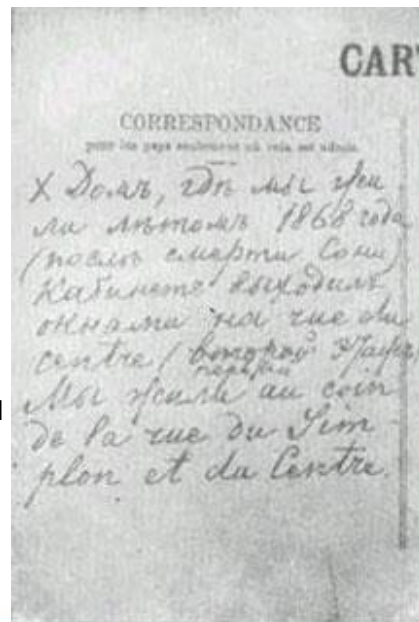 CAR
CORRESPONDANCE
pour les pays seulement où cela est admis.
X Домъ, гдѣ мы жи
ли лѣтомъ 1868 года
(послѣ смерти Сони)
Кабинетъ выходилъ
окнами на rue du
centre (второй этажъ
первый
Мы жили au coin
de la rue du Sim
plon et du Centre.